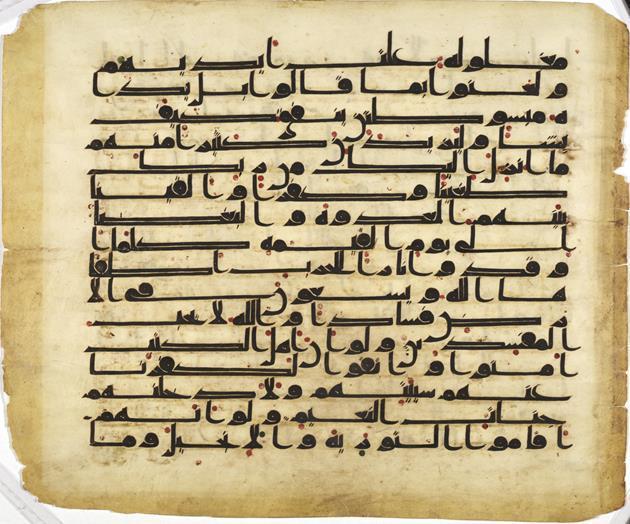 مغلوله غلت ايديهم
ولعنوا بما قالوا بل يدا
ه مبسوطتن ينفق كيف
يشا وليزيدن كثيرا منهم
ما انزل اليك من ربك
طغينا وكفرا والقينا
بينهم العدوه والبغضا
الى يوم القيمه كلما ا
وقدوا نارا للحرب اطفا
ها الله ويسعون في الا
رض فسادا والله لا يحب
المفسدين ولو ان اهل الكتب
امنوا واتقوا لكفرنا
عنهم سيتهم ولادخلنهم
جنات النعيم ولو انهم
اقاموا التوريه والانجيل وما